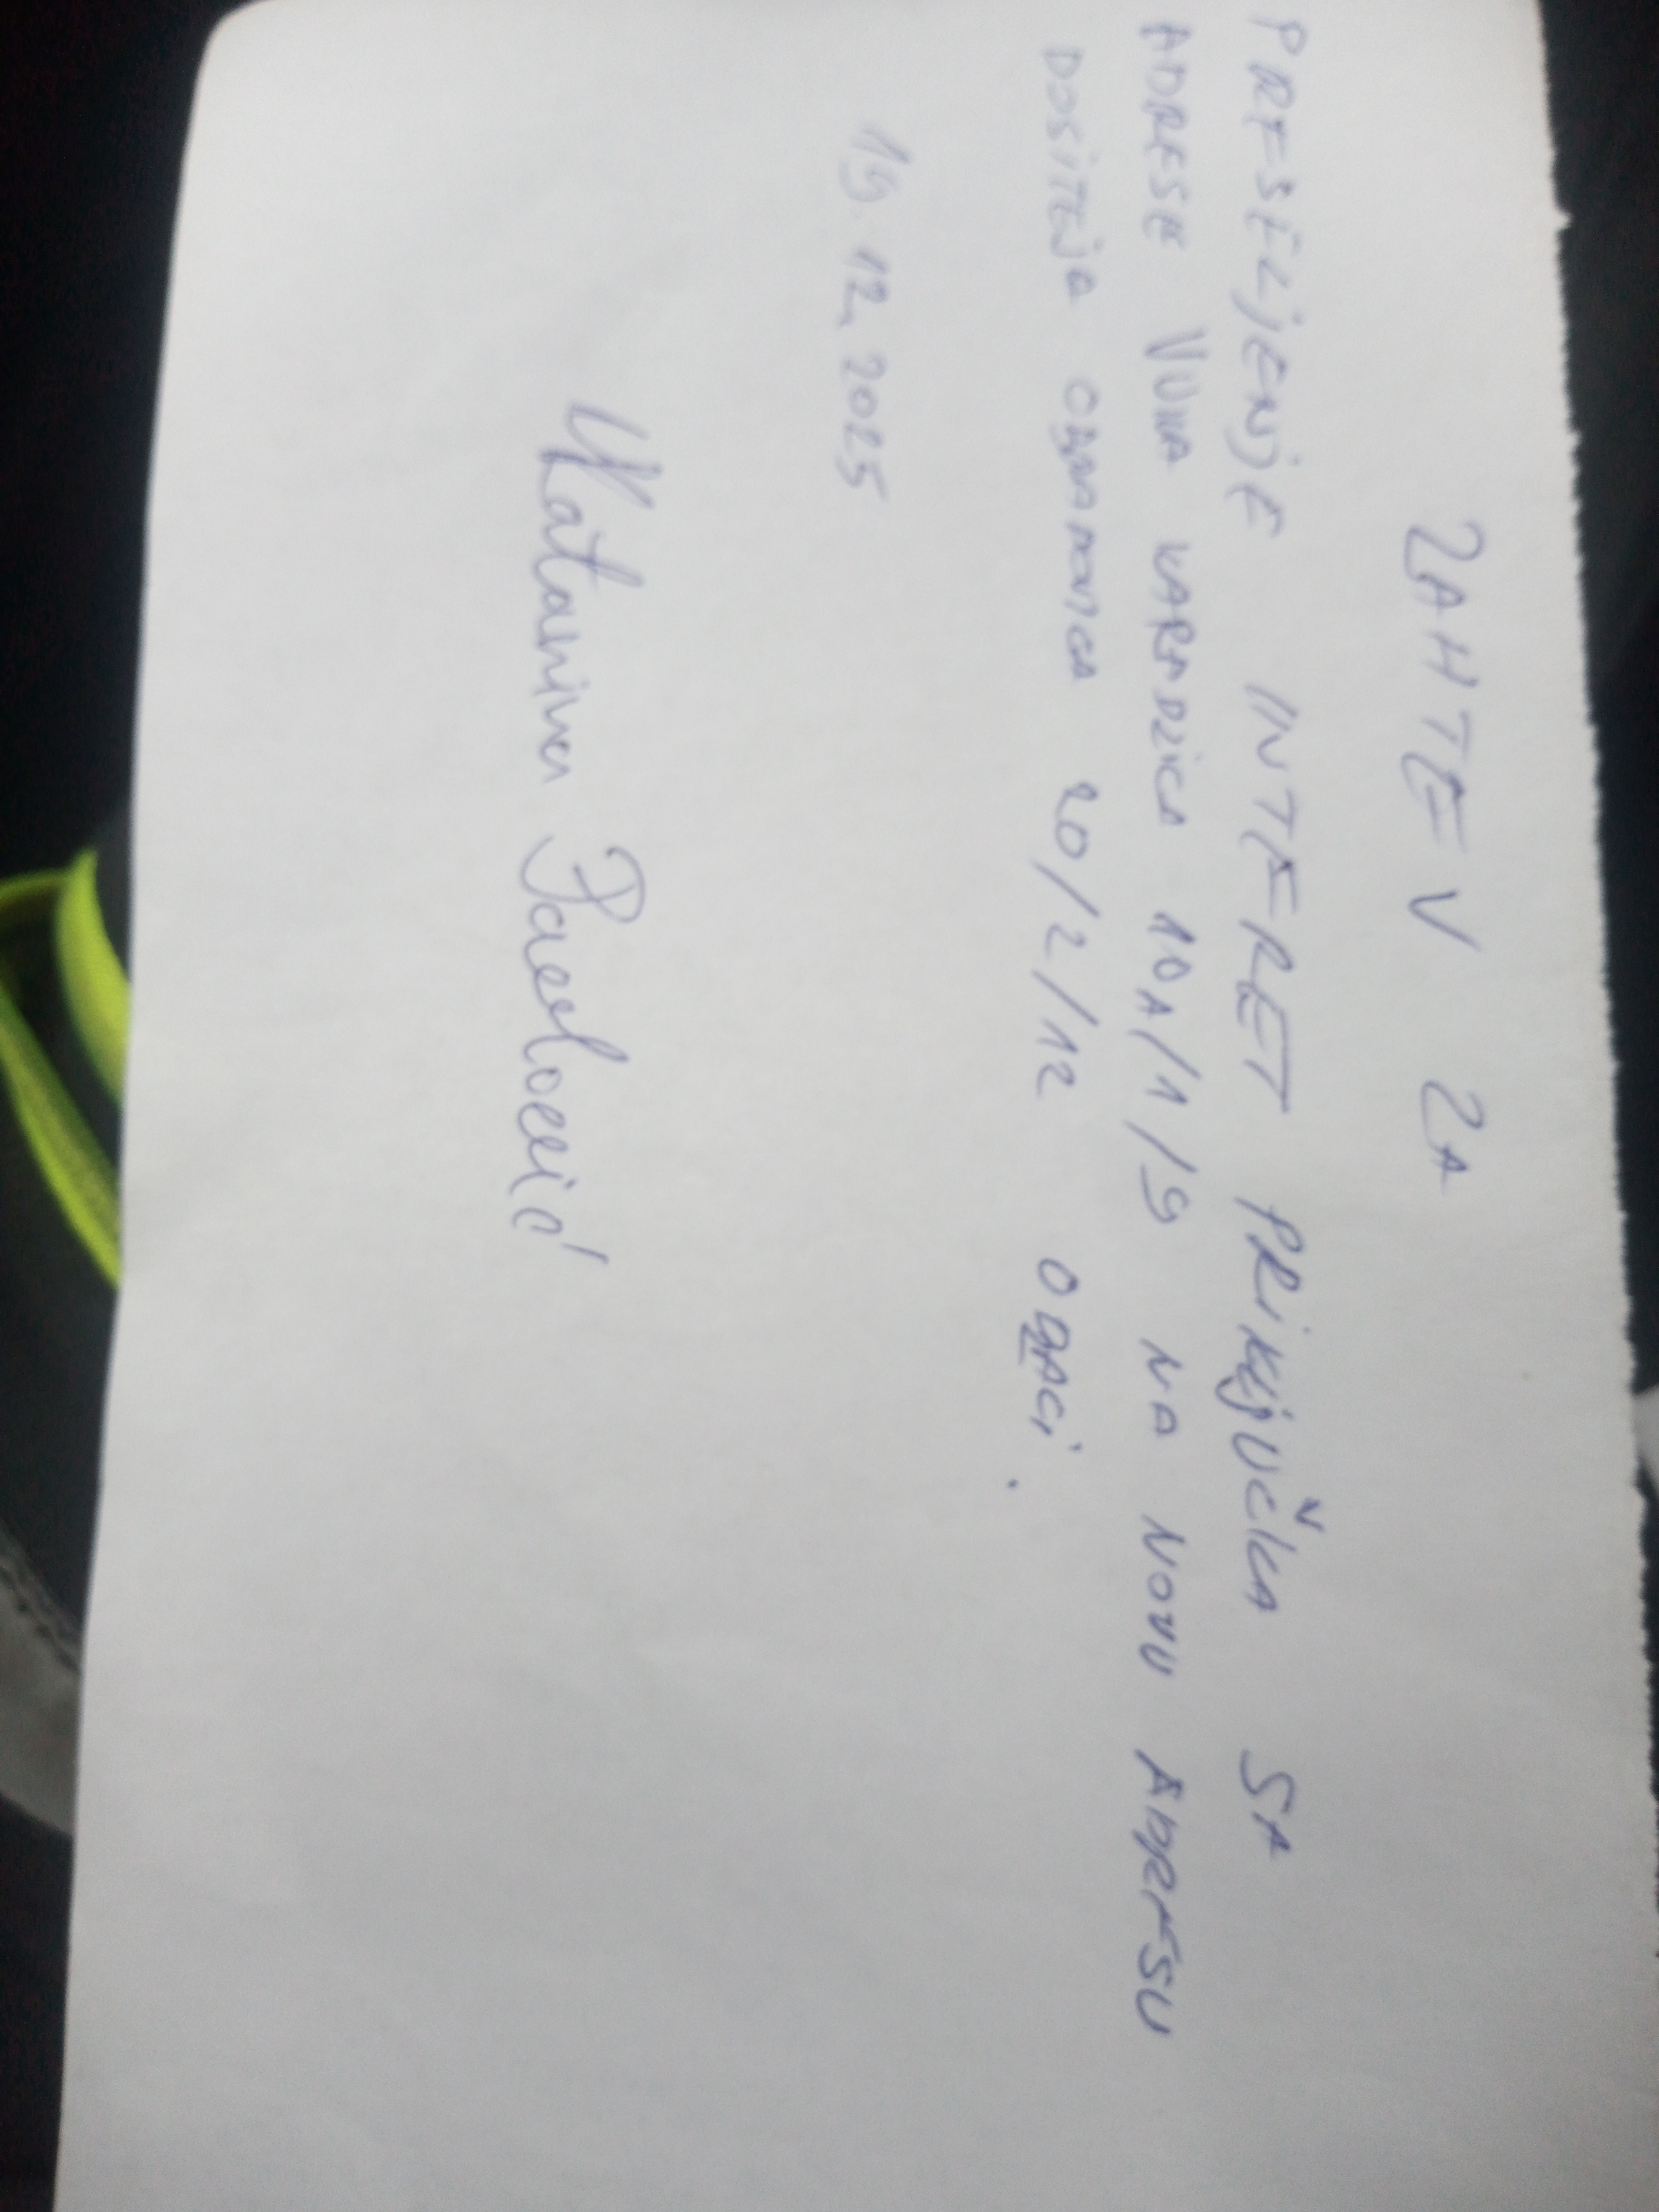 ZAHTEV ZA
PRESELJENJE INTERET PRIKLJUČKA SA
ADRESE VUKA KARADZICA 10A/1/9 NA NOVU ADRESU
DOSITEJA OBRADOVICA 20/2/12 ODŽACI.
19. 12. 2025
Katarina Pavlović